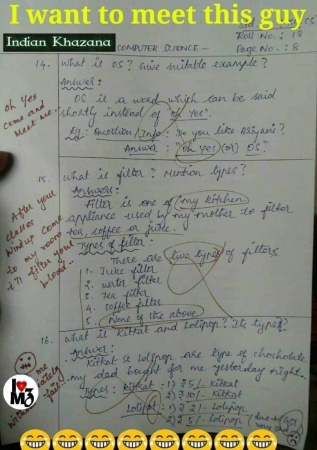 I want to meet this guy
Indian Khazana
Roll No.: 18
COMPUTER SCIENCE -
Page No.: 8
14. What is OS? Give suitable example?
Answer:
OS is a word which can be said
shortly instead of "oh Yes".
Eg: Question/Info: Do you like Biriyani?
Answer: "Oh Yes" (or) OS?
Oh Yes
come and
meet me.
15. What is filter? Mention types?
Answer:
Filter is one of my kitchen
appliance used by my mother to filter
tea, coffee or juice.
Types of filter:
There are five types of filters
1. Juice filter
2. water filter
3. Tea filter
4. coffee filter
5. None of the above
After your
classes
come
to my room
I'll filter your
blood
16. What is Kitkat and Lolipop? Its types?
Answer:
Kitkat & lolipop are type of chocholate
my dad bought for me yesterday night.
Types: Kitkat: 1) ₹5/- Kitkat
2) ₹10/- Kitkat
Lolipop: 1) ₹2/- Lolipop
2) ₹5/- Lolipop
me
I M3